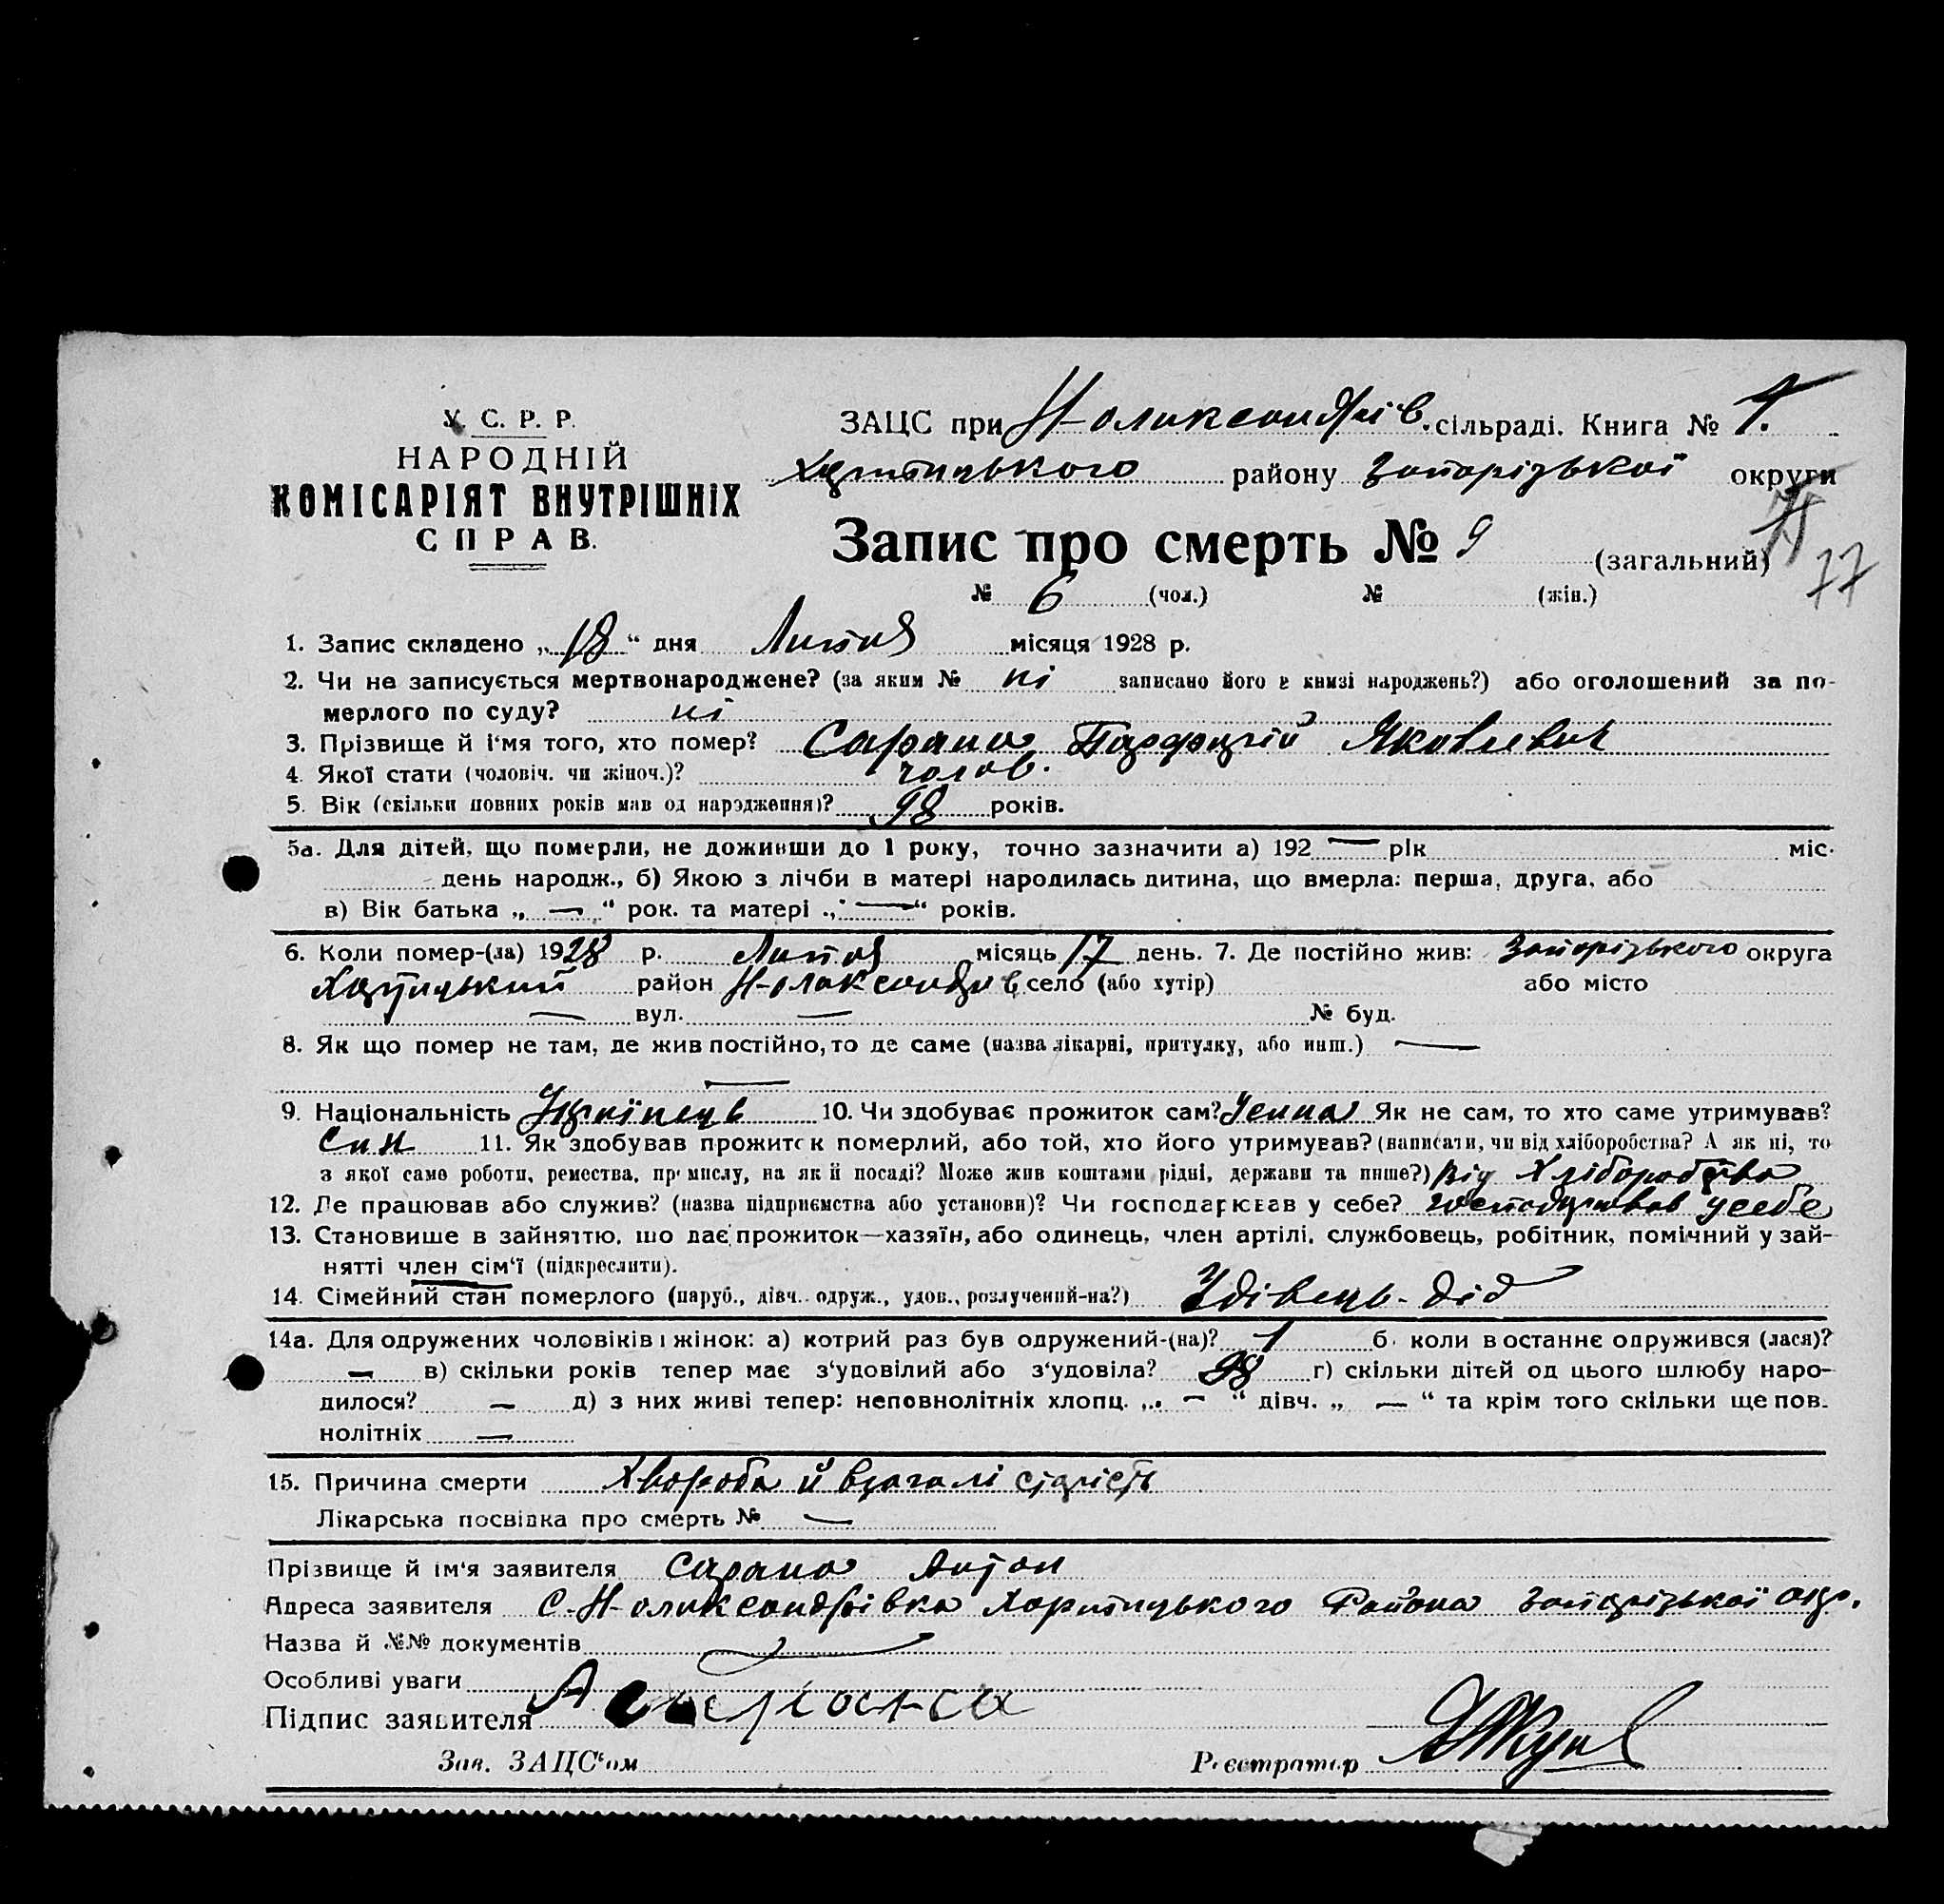 У. С. Р. Р.
НАРОДНІЙ
КОМІСАРІЯТ ВНУТРІШНІХ
СПРАВ.
ЗАЦС при Н-олександрів. сільраді. Книга № 1.
району Запорізької округи
Запис про смерть № 9 (загальний)
77
№ 6 (чол.) № (жін.)
1. Запис складено „18“ дня місяця 1928 р.
2. Чи не записується мертвонароджене? (за яким № ні записано його в книзі народжень?) або оголошений за по-
мерлого по суду? ні
3. Прізвище й і‘мя того, хто помер? Сарана Яковлевич
4. Якої стати (чоловіч. чи жіноч.)? чолов.
5. Вік (скільки повних років мав од народження)? 98 років.
5а. Для дітей, що померли, не доживши до 1 року, точно зазначити а) 192 — рік міс.
день народж., б) Якою з лічби в матері народилась дитина, що вмерла: перша, друга, або
в) Вік батька „ — “ рок. та матері „ — “ років.
6. Коли помер-(ла) 1928 р. місяць 17 день. 7. Де постійно жив: Запорізького округа
район Н-олександрів село (або хутір) або місто
— вул. — № буд.
8. Як що помер не там, де жив постійно, то де саме (назва лікарні, притулку, або инш.) —
—
9. Національність Украінець 10. Чи здобуває прожиток сам? Як не сам, то хто саме утримував?
Син 11. Як здобував прожиток померлий, або той, хто його утримував? (написати, чи від хліборобства? А як ні, то
з якої саме роботи, ремества, промислу, на як й посаді? Може жив коштами рідні, держави та инше?) Від Хліборобства
12. Де працював або служив? (назва підприємства або установи)? Чи господарював у себе? господарював усебе
13. Становище в зайняттю, що дає прожиток—хазяїн, або одинець, член артілі, службовець, робітник, помічний у зай-
нятті член сім‘ї (підкреслити).
14. Сімейний стан померлого (паруб., дівч. одруж., удов., розлучений-на?) Удівець-дід
14а. Для одружених чоловіків і жінок: а) котрий раз був одружений-(на)? 1 б. коли в останнє одружився (лася)?
— в) скільки років тепер має з‘удовілий або з‘удовіла? 98 г) скільки дітей од цього шлюбу наро-
дилося? — д) з них живі тепер: неповнолітніх хлопц. „ — “ дівч. „ — “ та крім того скільки ще пов.
нолітніх —
15. Причина смерти Хвороба й взагалі старість
Лікарська посвідка про смерть № —
Прізвище й ім‘я заявителя Сарана Антон
Адреса заявителя с. Н-олександрівка Хортицького Района Запорізької окр.
Назва й №№ документів
Особливі уваги
Підпис заявителя
Зав. ЗАЦС‘ом Реєстратор